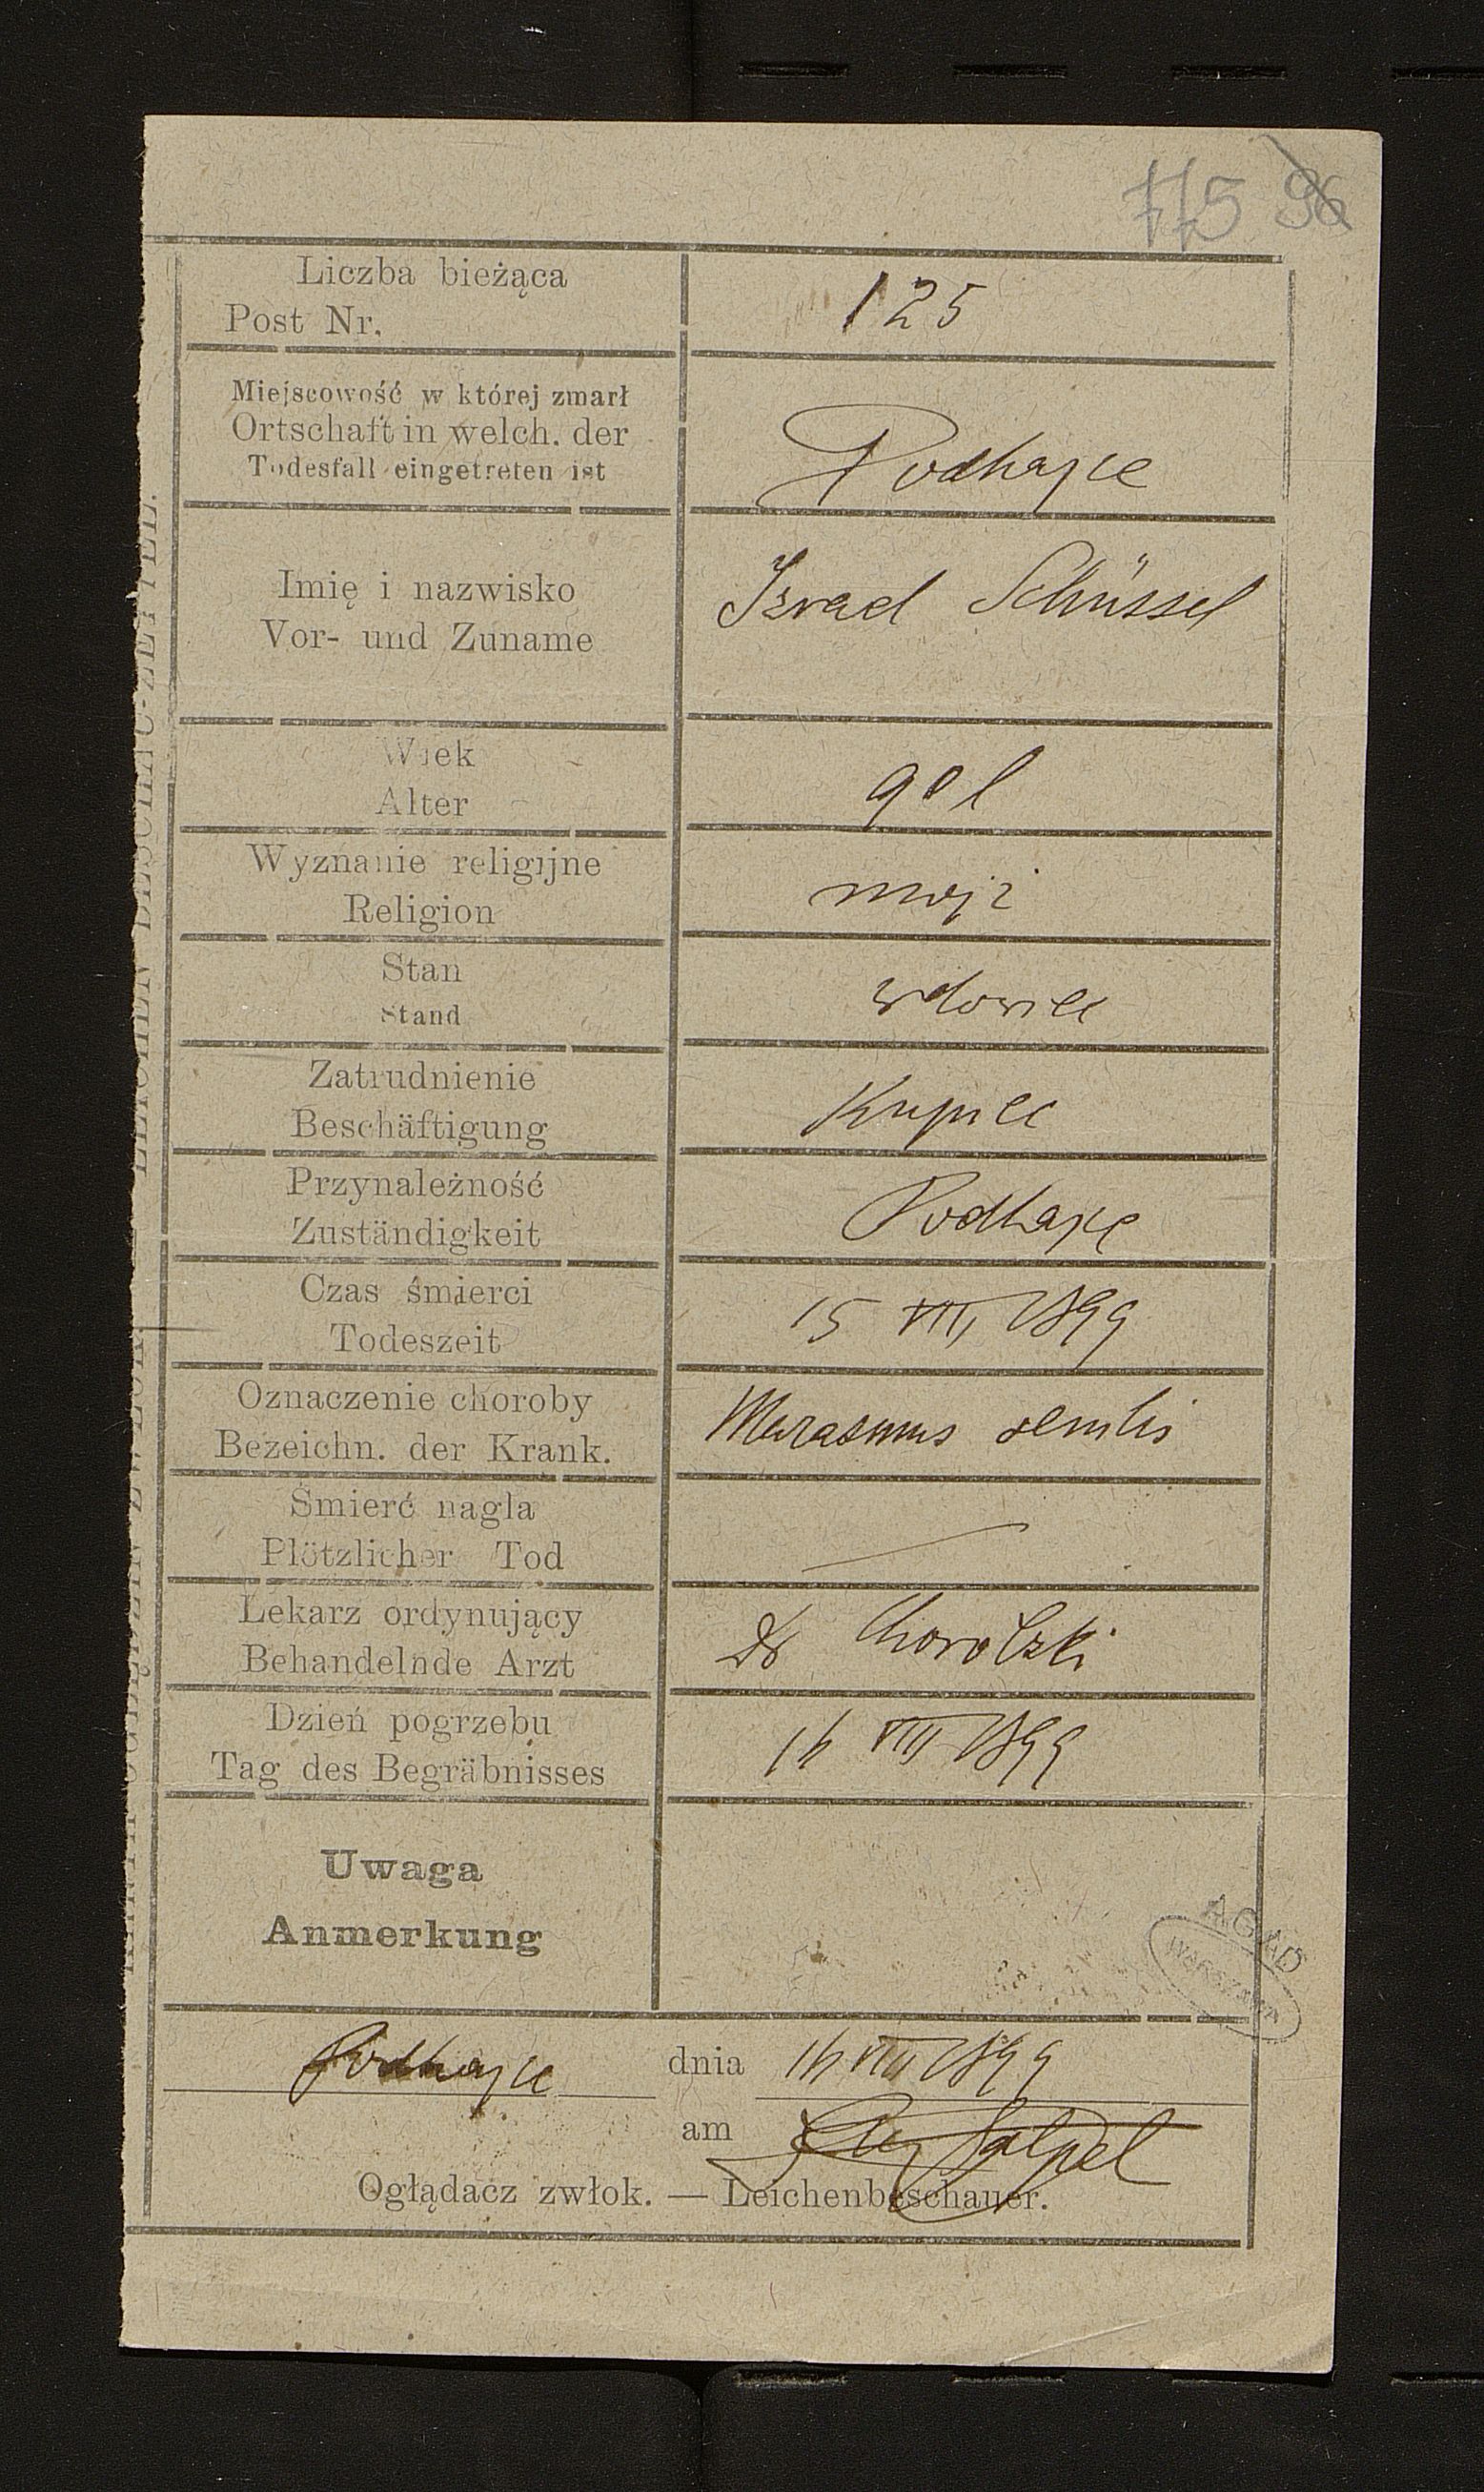 115 96
Liczba bieżąca
Post Nr.
125
Miejscowość w której zmarł
Ortschaft in welch. der
Todesfall eingetreten ist
Podhajce
Imię i nazwisko
Vor- und Zuname
Izrael Schüssel
Wiek
Alter
90 l
Wyznanie religijne
Religion
mojż
Stan
Stand
wdowiec
Zatrudnienie
Beschäftigung
Kupiec
Przynależność
Zuständigkeit
Podhajce
Czas śmierci
Todeszeit
15 VIII 1899
Oznaczenie choroby
Bezeichn. der Krank.
Marasmus senilis
Śmierć nagła
Plötzlicher Tod
Lekarz ordynujący
Behandelnde Arzt
Dr
Dzień pogrzebu
Tag des Begräbnisses
16 VIII 1899
Uwaga
Anmerkung
AGAD
WARSZAWA
Podhajce dnia 16 VIII 1899
am
Oglądacz zwłok. — Leichenbeschauer.
LEICHEN BESCHAU-ZETTEL.